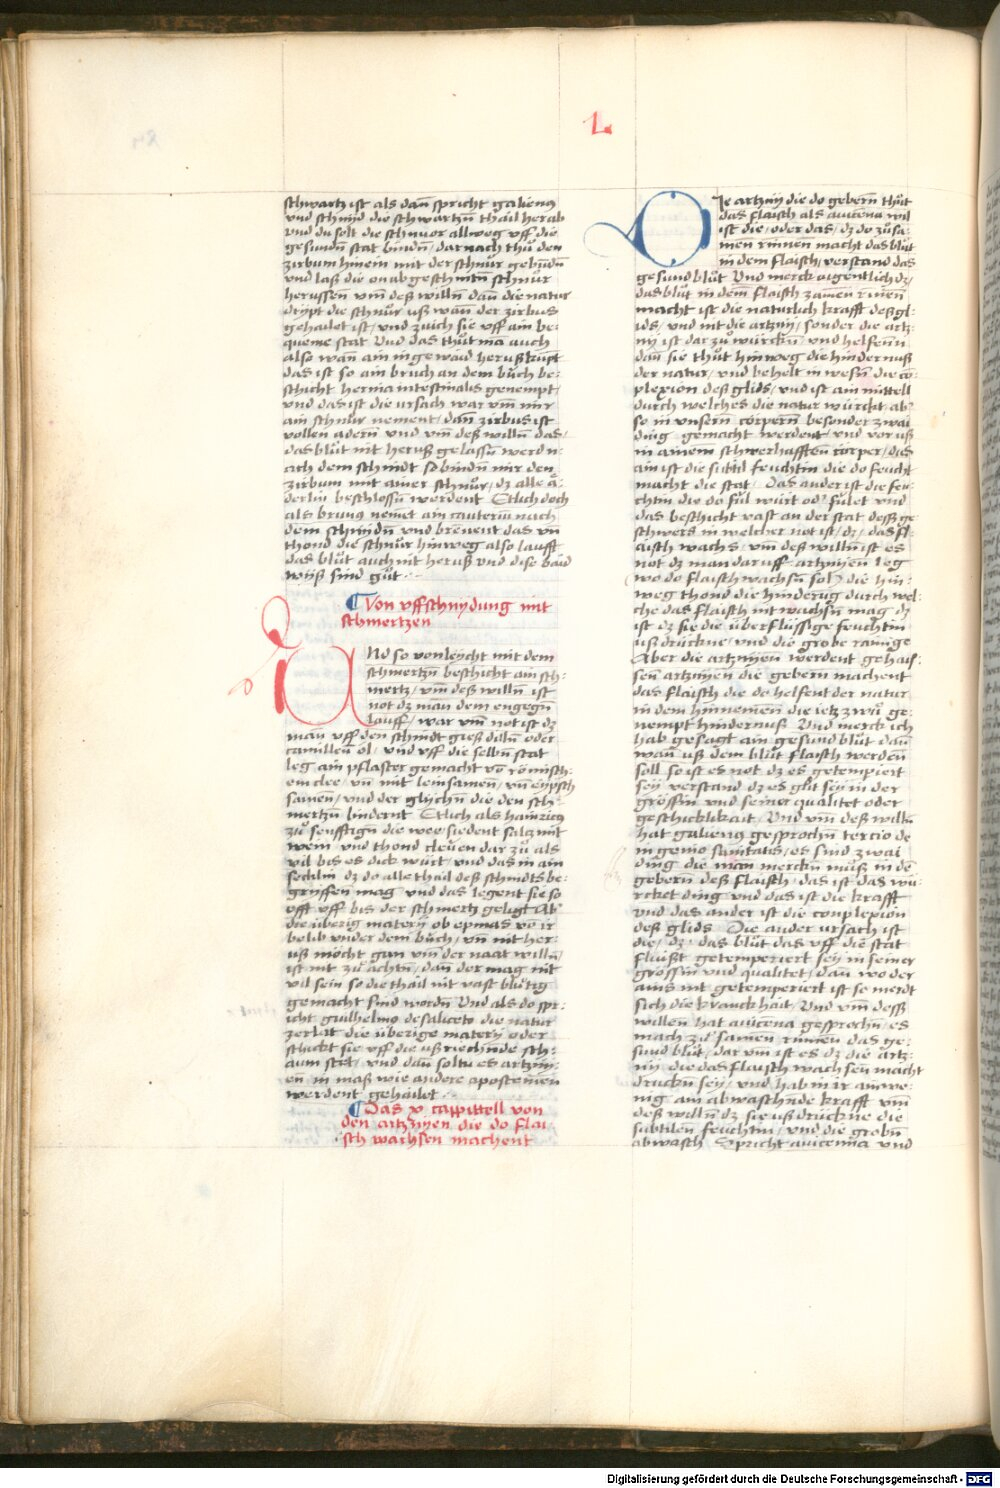 L
schwartz ist als dañ spricht galienus
vnd schnijd die schwartzñ thail herab
vnd du solt die schnuor allweg vff die
gesundñ stat bindñ / darnach thů den
zirbum hinein mit der schnůr gebundñ
vnd laß die onabgeschnitñ schnůr
herussen vm̃ deß willñ dañ die natur
trypt die schnůr uß wañ der zirbus
gehailet ist / vnd zuich sie vff ain be-
queme stat Vnd das thůt mã auch
also wañ ain ingewaid heruß kũpt
das ist so ain bruch an dem bůch be-
schicht hernia intestinalis genempt /
vnd das ist die vrsach war vm̃ wir
ain schnůr nement / dañ zirbus ist
vollen adern vnd vm̃ deß willñ das /
das blůt nit heruß gelassñ werd n-
ach dem schnidt so bindñ wir den
zirbum mit ainer schnůr / dz alle å-
derlin beschlossñ werdent Etlich doch
als brunus nemet ain cauteriũ nach
dem schnidñ vnd brenent das vñ
thond die schnůr hinweg also laufft
das blůt auch nit heruß vnd dise baid
wijß sind gůt
¶ Von vffschnydung mit
schmertzen
Nd so von leycht mit dem
schmertzñ beschicht ain sch-
mertz / vm̃ deß willñ ist
not dz man dem engegñ
lauff / war vm̃ not ist dz
man vff den schnidt gieß dilñ oder
camillen ől / vnd vff die selbñ stat
leg ain pflaster gemacht võ rőmisch-
em clee / vñ mit leinsamen / vñ eypsch
samen / vnd der glychñ die den sch-
mertzñ lindernt Etlich als hainricus
zů senfftigñ die wee / siedent saltz mit
wein vnd thond cleuen dar zů als
vil bis es dick würt vnd das in ain
secklin dz do alle thail deß schnidts be-
gryffen mag vnd das legent sie so
offt vff bis der schmertz geligt Ab
die überig matery ob epmas võ ir
belib vnder dem bůch / vñ nit her-
uß mőcht gan vm̃ der naat willñ /
ist nit zů achtñ / dañ der mag nit
vil sein so die thail nit vast blůtig
gemacht sind wordñ Vnd als do spr-
icht guilhelmo de saliceto die natur
zerlat die überige matery oder
schickt sie vff die uß riechñde sch-
aum stat / vnd dañ soltu es artzny-
en in maß wie andere apostemen
werdent gehailet
¶ Das v cappittell von
den artznyen die do flai-
sch wachsen machent
Je artzny die do gebern̄ thůt
das flaisch als auicena wil
ist die / oder das / dz do zůsa-
men rinnen macht das blůt
in dem flaisch / verstand das
gesund blůt Vnd merck aigentlich dz /
das blůt in dem flaisch zamen riñen
macht ist die naturlich krafft deß gl-
ids / vnd nit die artzny / sonder die artz-
ny ist dar zů würckñ vnd helfenñ
dañ sie thůt hinweg die hindernuß
der natur / vnd behelt in wesñ die cõ-
plexion deß glids / vnd ist ain mittell
durch welches die natur würckt ab
so in vnsern cőrpern besonder zwai
ding gemacht werdent / vnd vor uß
in ainem schwerhafften cőrper / das
ain ist die subtil feuchtin die do feucht
macht die stat Das ander ist die feu-
chtin die do fůl würt od fület vnd
das beschicht vast an der stat deß ge-
schwers in welcher not ist / dz / das fl-
aisch wachs / vm̃ deß willñ ist es
not dz man daruff artznyen leg
wo do flaisch wachsñ sol / die hin-
weg thond die hinderug durch wel-
che das flaisch nit wachsñ mag dz
ist dz sie die überflüssige feuchtin
uß drückne / vnd die grobe rainige
Aber die artznyen werdent gehais-
sen artznyen die gebern machent
das flaisch die do helfent der natur
in dem hinnemen die ietz zwů ge-
nempt hindernuß Vnd merck ich
hab gesagt ain gesund blůt dañ
wañ uß dem blůt flaisch werden
soll so ist es not dz es getempiert
sey verstand dz es gůt sey in der
grőssin vnd seiner qualitet oder
geschicklikait Vnd vm̃ deß willñ
hat galienus gesprochñ tercio de
in genio sanitatis / es sind zwai
ding die man merckñ můß in dẽ
gebern deß flaisch / das ist das wü-
rcket ding vnd das ist die krafft
vnd das ander ist die complexion
deß glids Die ander vrsach ist
die / dz das blůt das vff die stat
flüißt getemperiert sey in seiner
grőssin vnd qualitet / dañ wo der
ains nit getemperiert ist so meret
sich die kranckhait Vnd vm̃ deß
willen hat auicena gesprochñ / es
mach zů samen rinnen das ge-
sund blůt / dar vm̃ ist es dz die artz-
ny die das flaisch wachsen macht
druckñ sey / vnd hab in ir ain we-
nig ain abwaschnde krafft vm̃
deß willñ dz sie uß drückne die
subtilen feuchtin / vnd die grobñ
abwasch Spricht auicenna vnd
Digitalisierung gefördert durch die Deutsche Forschungsgemeinschaft - DFG